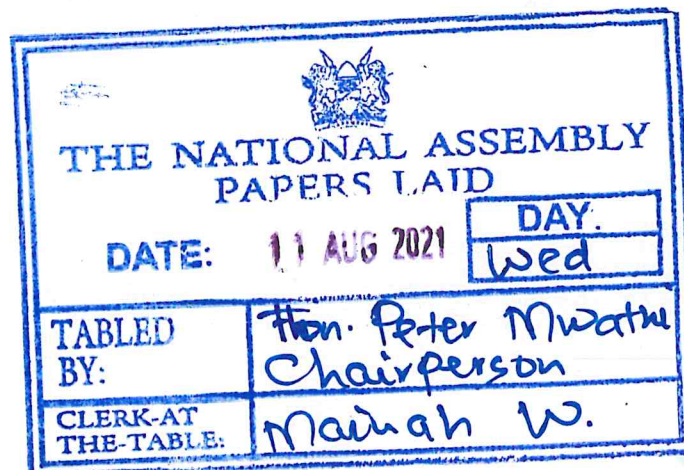 THE NATIONAL ASSEMBLY
PAPERS LAID
DATE: 11 AUG 2021 DAY. Wed
TABLED BY: Hon. Peter Mwathi
Chairperson
CLERK-AT THE-TABLE: Mainah W.